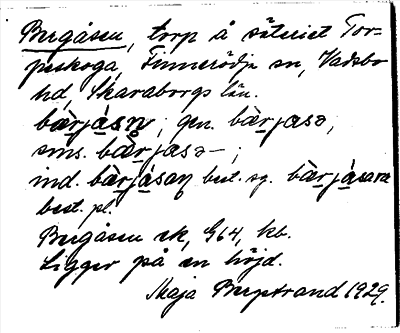 Bergåsen, torp å säteriet Tor=
peskoga, Finnerödja sn, Vadsbo
hd, Skaraborgs län.
bàrjàsn; gen. bàrjasə,
sms. bàrjasə–;
ind. bàrjåsaɲ best. sg. bàrjåsarna
best. pl.
Bergåsen ek, G64, kb.
Ligger på en höjd.
Maja Bergstrand 1929.